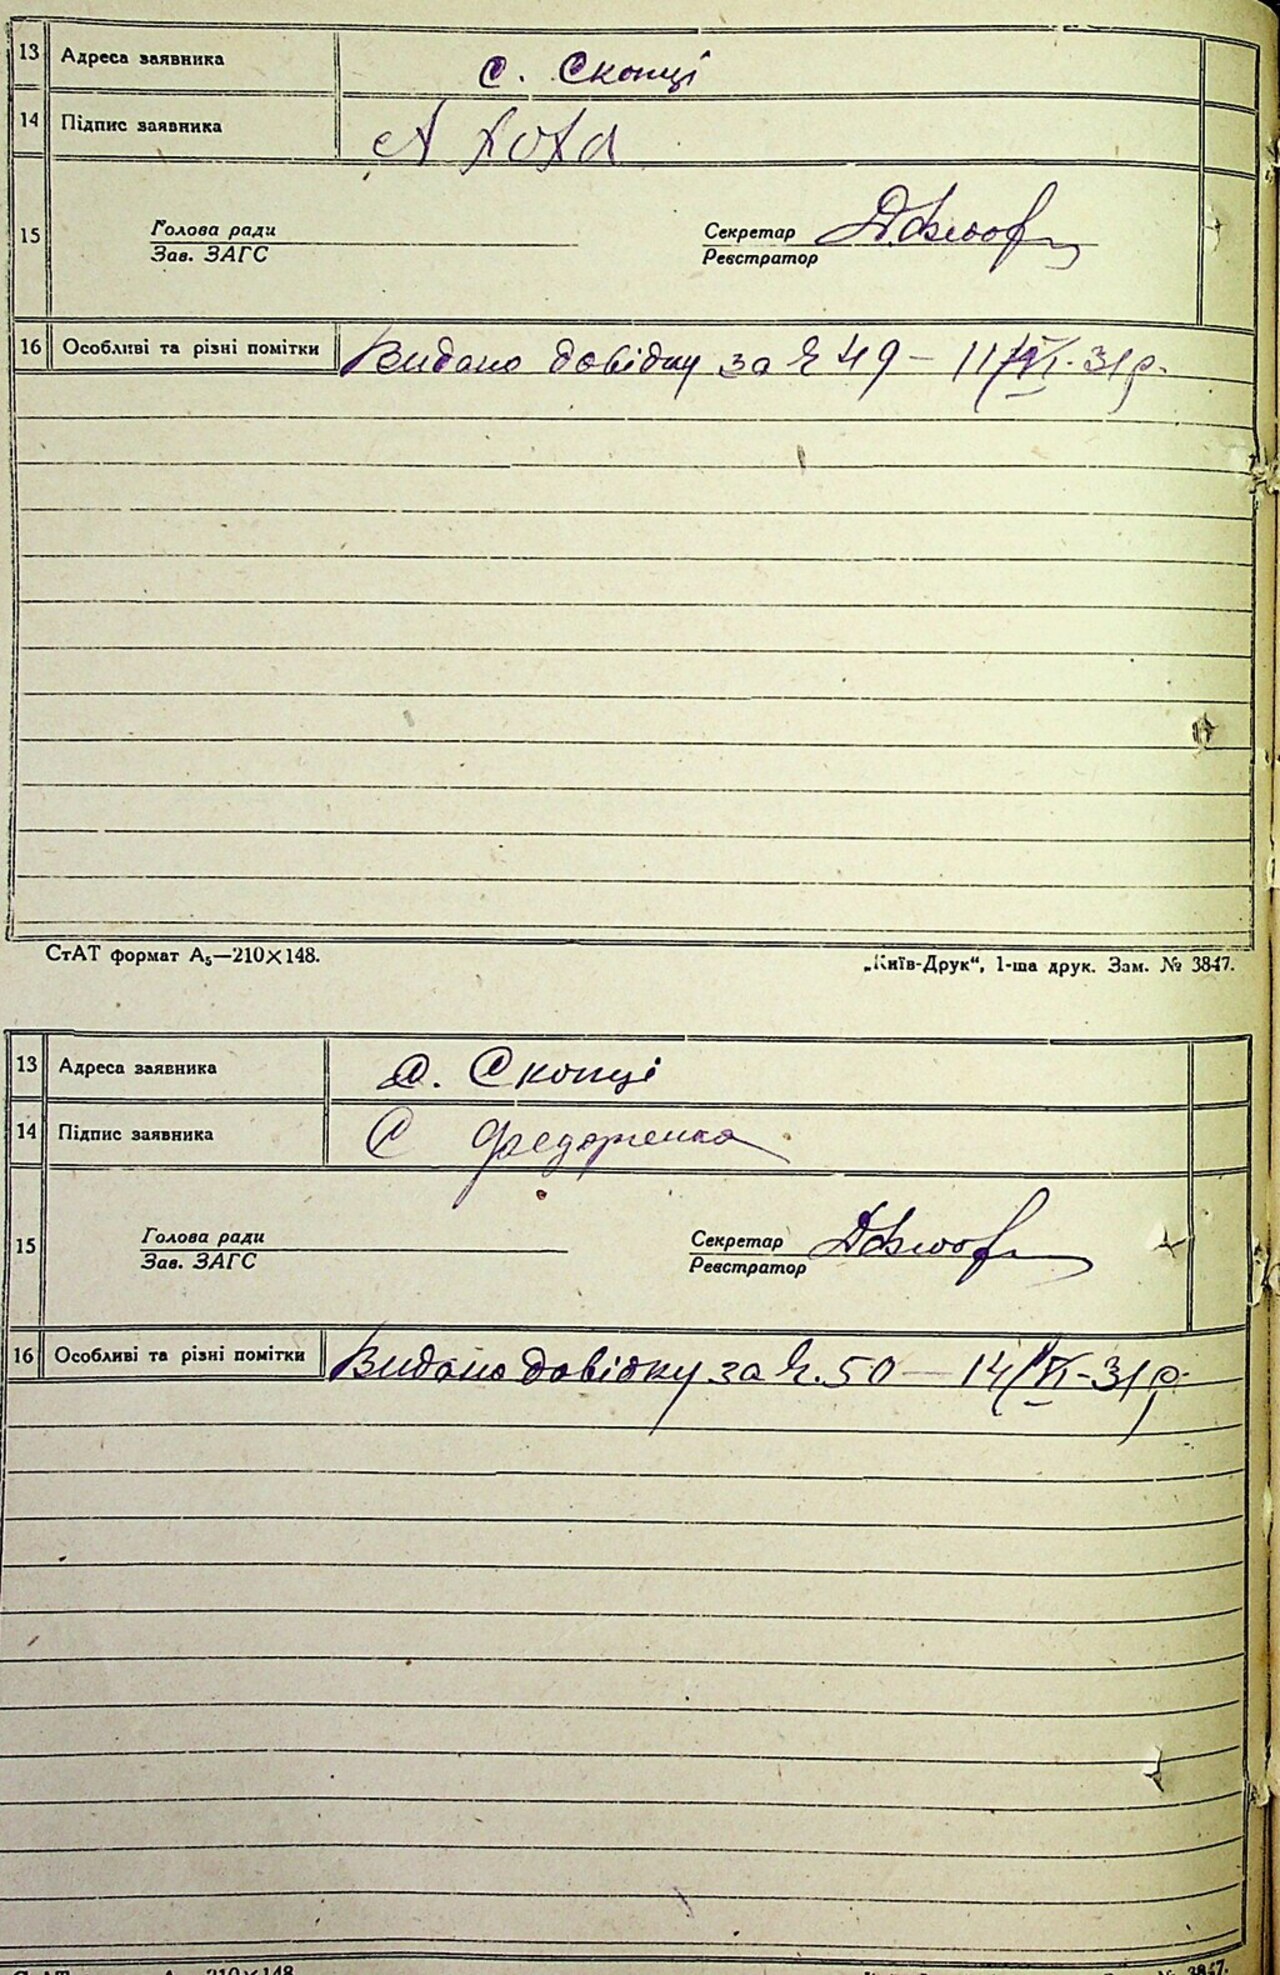 13 Адреса заявника с. Скопці
14 Підпис заявника А
15 Голова ради Секретар
Зав. ЗАГС Реєстратор
16 Особливі та різні помітки Видано довідку за № 49 — 11/VI-31р.
СтАТ формат А₅—210×148. „Київ-Друк“, 1-ша друк. Зам. № 3847.
13 Адреса заявника с. Скопці
14 Підпис заявника С Федоренко
15 Голова ради Секретар
Зав. ЗАГС Реєстратор
16 Особливі та різні помітки Видано довідку за №. 50 — 14/VI-31р.
210×148 № 3847.